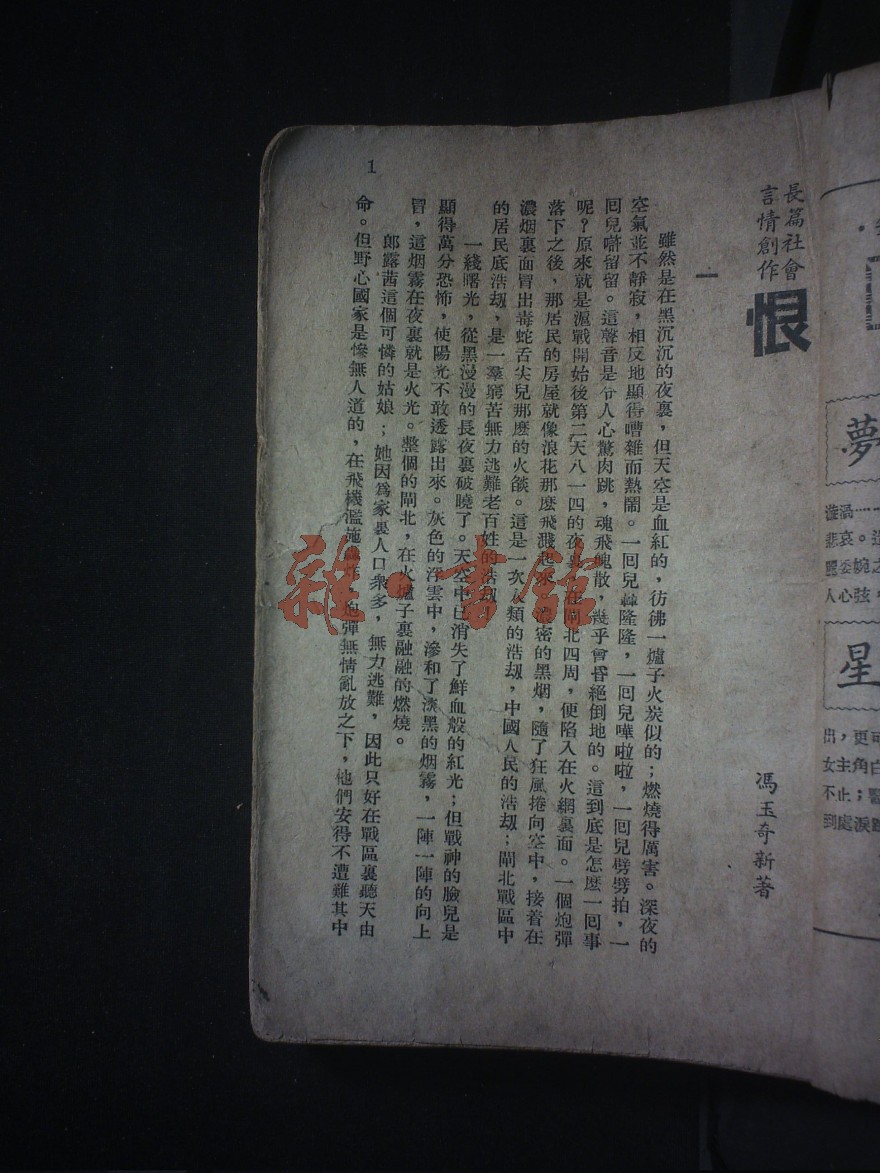 長篇社會
言情創作
恨
馮玉奇新著
一
雖然是在黑沉沉的夜裏，但天空是血紅的，彷彿一爐子火炭似的；燃燒得厲害。深夜的
空氣並不靜寂，相反地顯得嘈雜而熱鬧。一囘兒轟隆隆，一囘兒嘩啦啦，一囘兒劈劈拍，一
囘兒嗒留留。這聲音是令人心驚肉跳，魂飛魄散，幾乎會昏絕倒地的。這到底是怎麽一囘事
呢？原來就是滬戰開始後第二天八一四的夜裏，在閘北四周，便陷入在火網裏面。一個炮彈
落下之後，那居民的房屋就像浪花那麽飛濺起來，濃密的黑烟，隨了狂風捲向空中，接着在
濃烟裏面冒出毒蛇舌尖兒那麽的火燄。這是一次人類的浩刼，中國人民的浩刼；閘北戰區中
的居民底浩刼，是一羣窮苦無力逃難老百姓的浩刼
一綫曙光，從黑漫漫的長夜裏破曉了。天空中已消失了鮮血般的紅光；但戰神的臉兒是
顯得萬分恐怖，使陽光不敢透露出來。灰色的浮雲中，滲和了淡黑的烟霧，一陣一陣的向上
冒，這烟霧在夜裏就是火光。整個的閘北，在火爐子裏融融的燃燒。
郎露茜這個可憐的姑娘；她因爲家裏人口衆多，無力逃難，因此只好在戰區裏聽天由
命。但野心國家是慘無人道的，在飛機濫施 炮彈無情亂放之下，他們安得不遭難其中
1
夢
漩渦……
悲哀。
委婉之
人心弦
星
出，更可
女主角白
不止；
到處淚
雜·書館